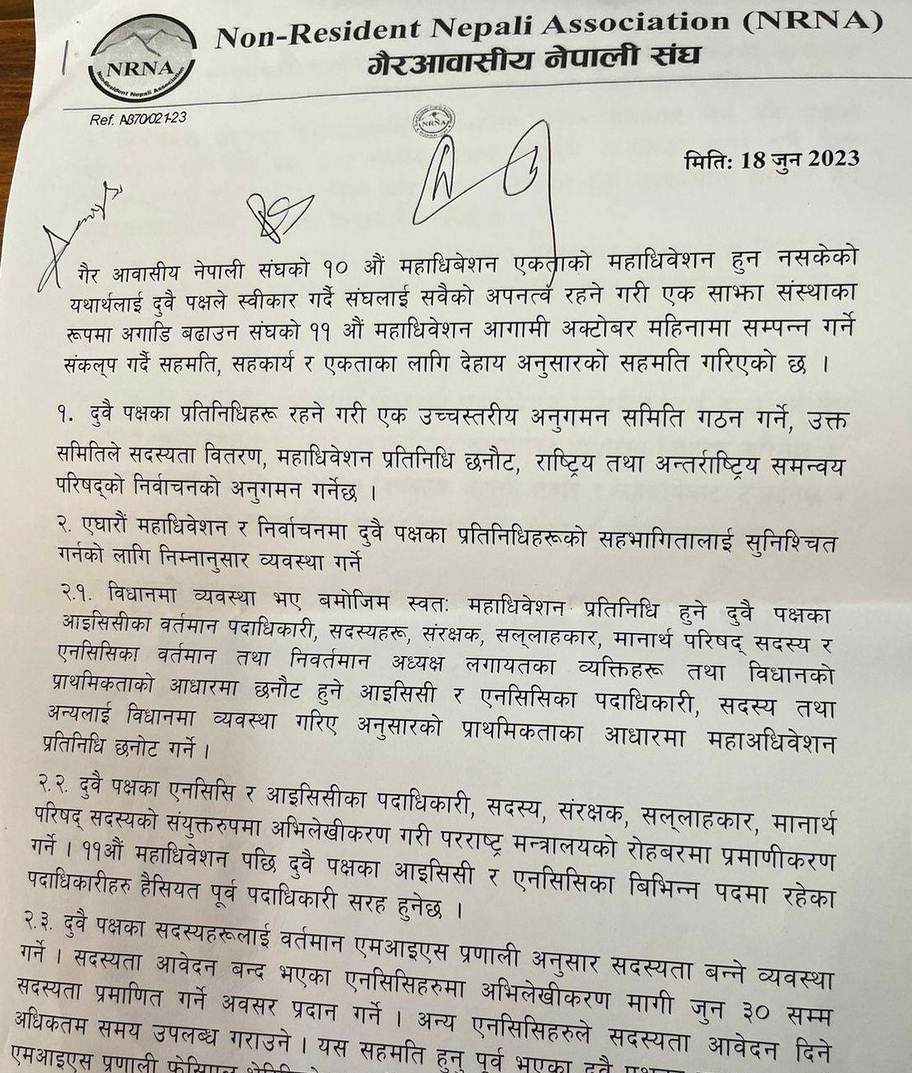 Non-Resident Nepali Association (NRNA)
गैरआवासीय नेपाली संघ
NRNA
Non-Resident Nepali Association
Ref. AB70/021-23
NRNA
मिति: 18 जुन 2023
गैर आवासीय नेपाली संघको १० औं महाधिबेशन एकताको महाधिवेशन हुन नसकेको
यथार्थलाई दुवै पक्षले स्वीकार गर्दै संघलाई सवैको अपनत्व रहने गरी एक साझा संस्थाका
रूपमा अगाडि बढाउन संघको ११ औं महाधिवेशन आगामी अक्टोबर महिनामा सम्पन्न गर्ने
संकल्प गर्दै सहमति, सहकार्य र एकताका लागि देहाय अनुसारको सहमति गरिएको छ ।
१. दुवै पक्षका प्रतिनिधिहरू रहने गरी एक उच्चस्तरीय अनुगमन समिति गठन गर्ने, उक्त
समितिले सदस्यता वितरण, महाधिवेशन प्रतिनिधि छनौट, राष्ट्रिय तथा अन्तर्राष्ट्रिय समन्वय
परिषद्को निर्वाचनको अनुगमन गर्नेछ ।
२. एघारौं महाधिवेशन र निर्वाचनमा दुवै पक्षका प्रतिनिधिहरूको सहभागितालाई सुनिश्चित
गर्नको लागि निम्नानुसार व्यवस्था गर्ने
२.१. विधानमा व्यवस्था भए बमोजिम स्वतः महाधिवेशन प्रतिनिधि हुने दुवै पक्षका
आइसिसीका वर्तमान पदाधिकारी, सदस्यहरू, संरक्षक, सल्लाहकार, मानार्थ परिषद् सदस्य र
एनसिसिका वर्तमान तथा निवर्तमान अध्यक्ष लगायतका व्यक्तिहरू तथा विधानको
प्राथमिकताको आधारमा छनौट हुने आइसिसी र एनसिसिका पदाधिकारी, सदस्य तथा
अन्यलाई विधानमा व्यवस्था गरिए अनुसारको प्राथमिकताका आधारमा महाअधिवेशन
प्रतिनिधि छनोट गर्ने ।
२.२. दुवै पक्षका एनसिसि र आइसिसीका पदाधिकारी, सदस्य, संरक्षक, सल्लाहकार, मानार्थ
परिषद् सदस्यको संयुक्तरुपमा अभिलेखीकरण गरी परराष्ट्र मन्त्रालयको रोहबरमा प्रमाणीकरण
गर्ने । ११औं महाधिवेशन पछि दुवै पक्षका आइसिसी र एनसिसिका बिभिन्न पदमा रहेका
पदाधिकारीहरु हैसियत पूर्व पदाधिकारी सरह हुनेछ ।
२.३. दुवै पक्षका सदस्यहरूलाई वर्तमान एमआइएस प्रणाली अनुसार सदस्यता बन्ने व्यवस्था
गर्ने । सदस्यता आवेदन बन्द भएका एनसिसिहरुमा अभिलेखीकरण मागी जुन ३० सम्म
सदस्यता प्रमाणित गर्ने अवसर प्रदान गर्ने । अन्य एनसिसिहरुले सदस्यता आवेदन दिने
अधिकतम समय उपलब्ध गराउने । यस सहमति हुनु पूर्व भएका दुवै
एमआइएस प्रणाली